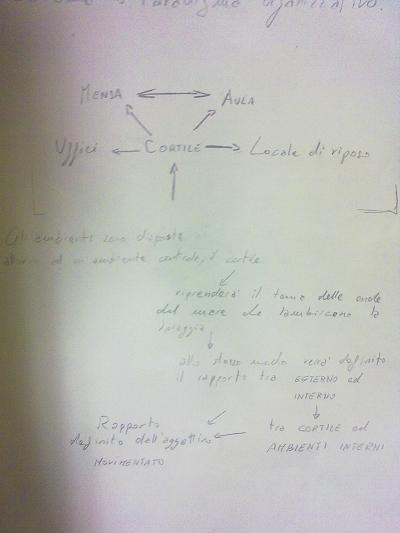 Paradigma organizzativo.
MENSA AULA
Uffici CORTILE Locale di riposo
Gli ambienti sono disposti
attorno ad un ambiente centrale, il cortile
riprenderà il tema delle onde
del mare che lambiscono la
spiaggia
allo stesso modo verrà definito
il rapporto tra ESTERNO ed
INTERNO
tra CORTILE ed
AMBIENTI INTERNI
Rapporto
definito dall'aggettivo
MOVIMENTATO